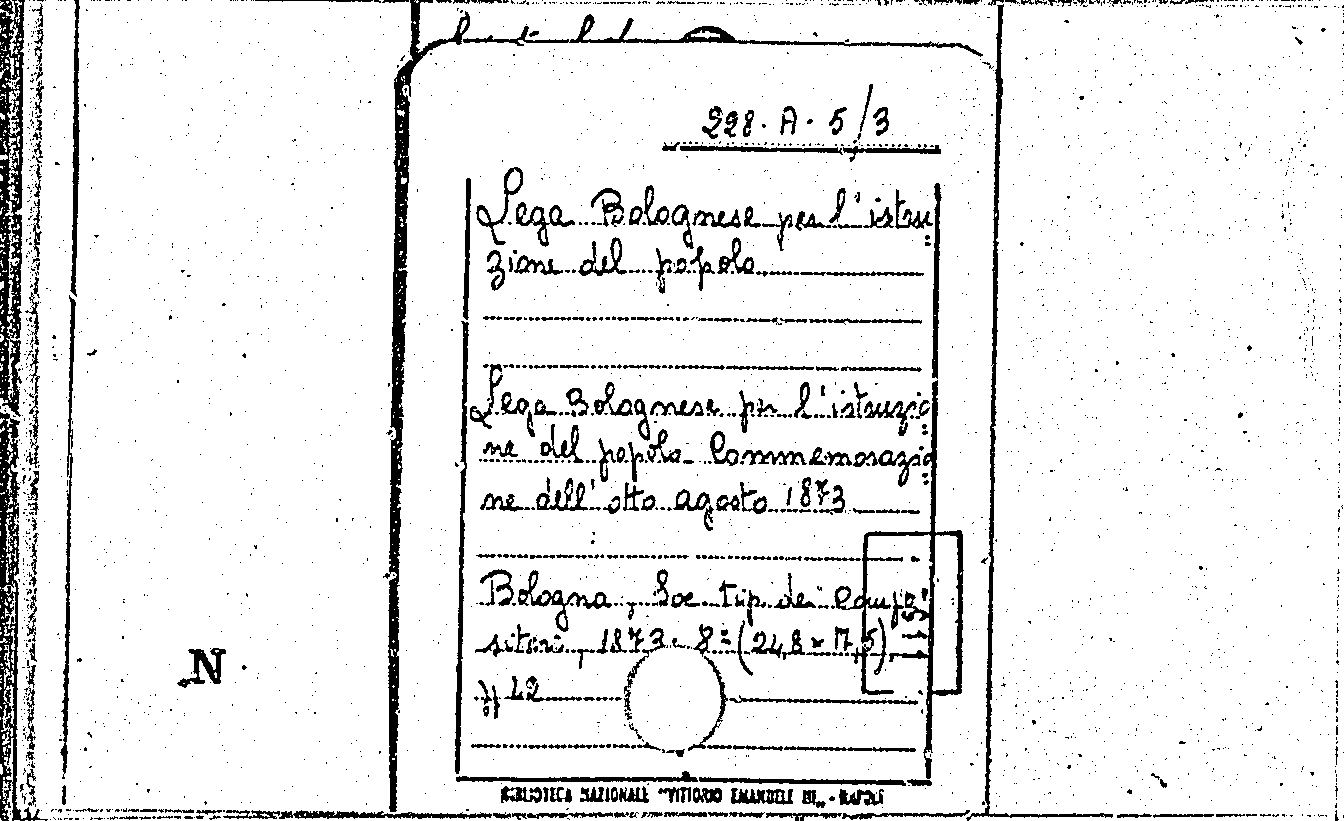 228. A. 5/3
Lega Bolognese per l'istru
zione del popolo
Lega Bolognese per l'istruzio
ne del popolo Commemorazio
ne dell'otto agosto 1873
Bologna, Soc tip dei Compo
sitori, 1873. 8° (24,8 × 17,5),
pp 42
N
BIBLIOTECA NAZIONALE "VITTORIO EMANUELE III„ - NAPOLI